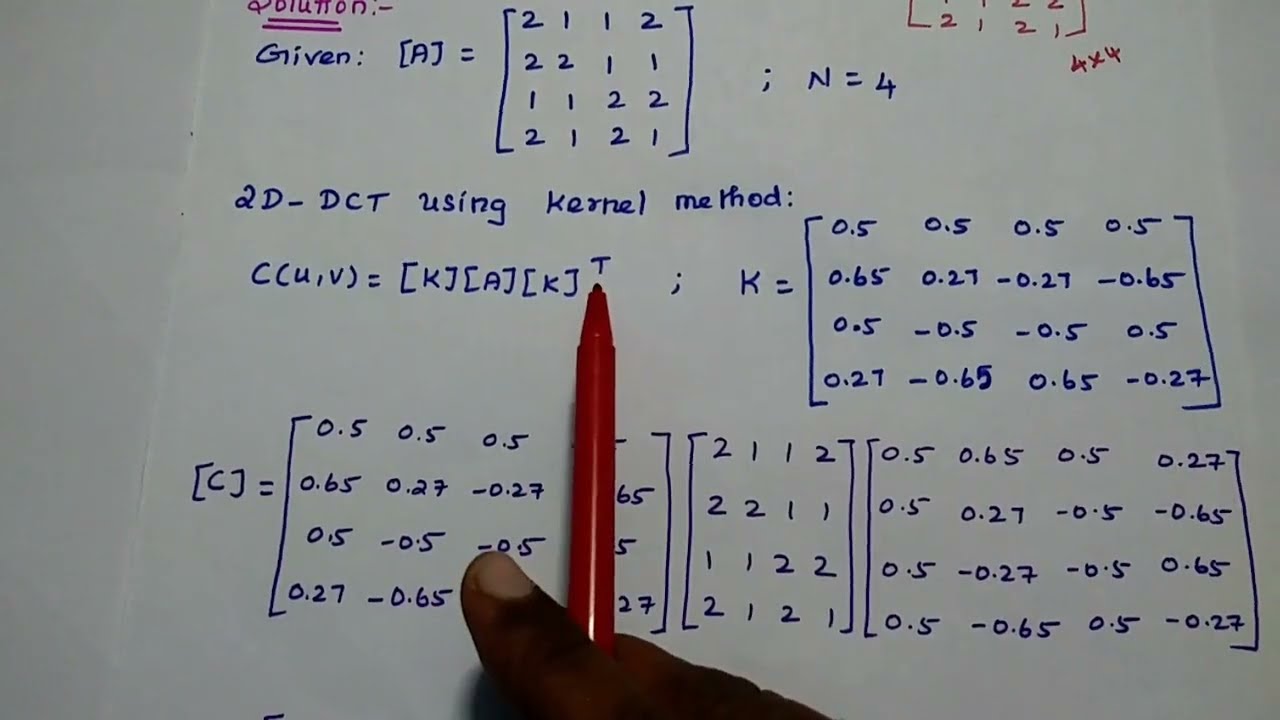 Solution:-
2 1 2 1
4x4
Given: [A] = [2 1 1 2
2 2 1 1
1 1 2 2
2 1 2 1] ; N = 4
2D-DCT using kernel method:
C(u,v) = [K][A][K]^T ; K = [0.5 0.5 0.5 0.5
0.65 0.27 -0.27 -0.65
0.5 -0.5 -0.5 0.5
0.27 -0.65 0.65 -0.27]
[C] = [0.5 0.5 0.5 ] [2 1 1 2] [0.5 0.65 0.5 0.27]
0.65 0.27 -0.27 65 2 2 1 1 0.5 0.27 -0.5 -0.65
0.5 -0.5 -0.5 5 1 1 2 2 0.5 -0.27 -0.5 0.65
0.27 -0.65 27 2 1 2 1 0.5 -0.65 0.5 -0.27